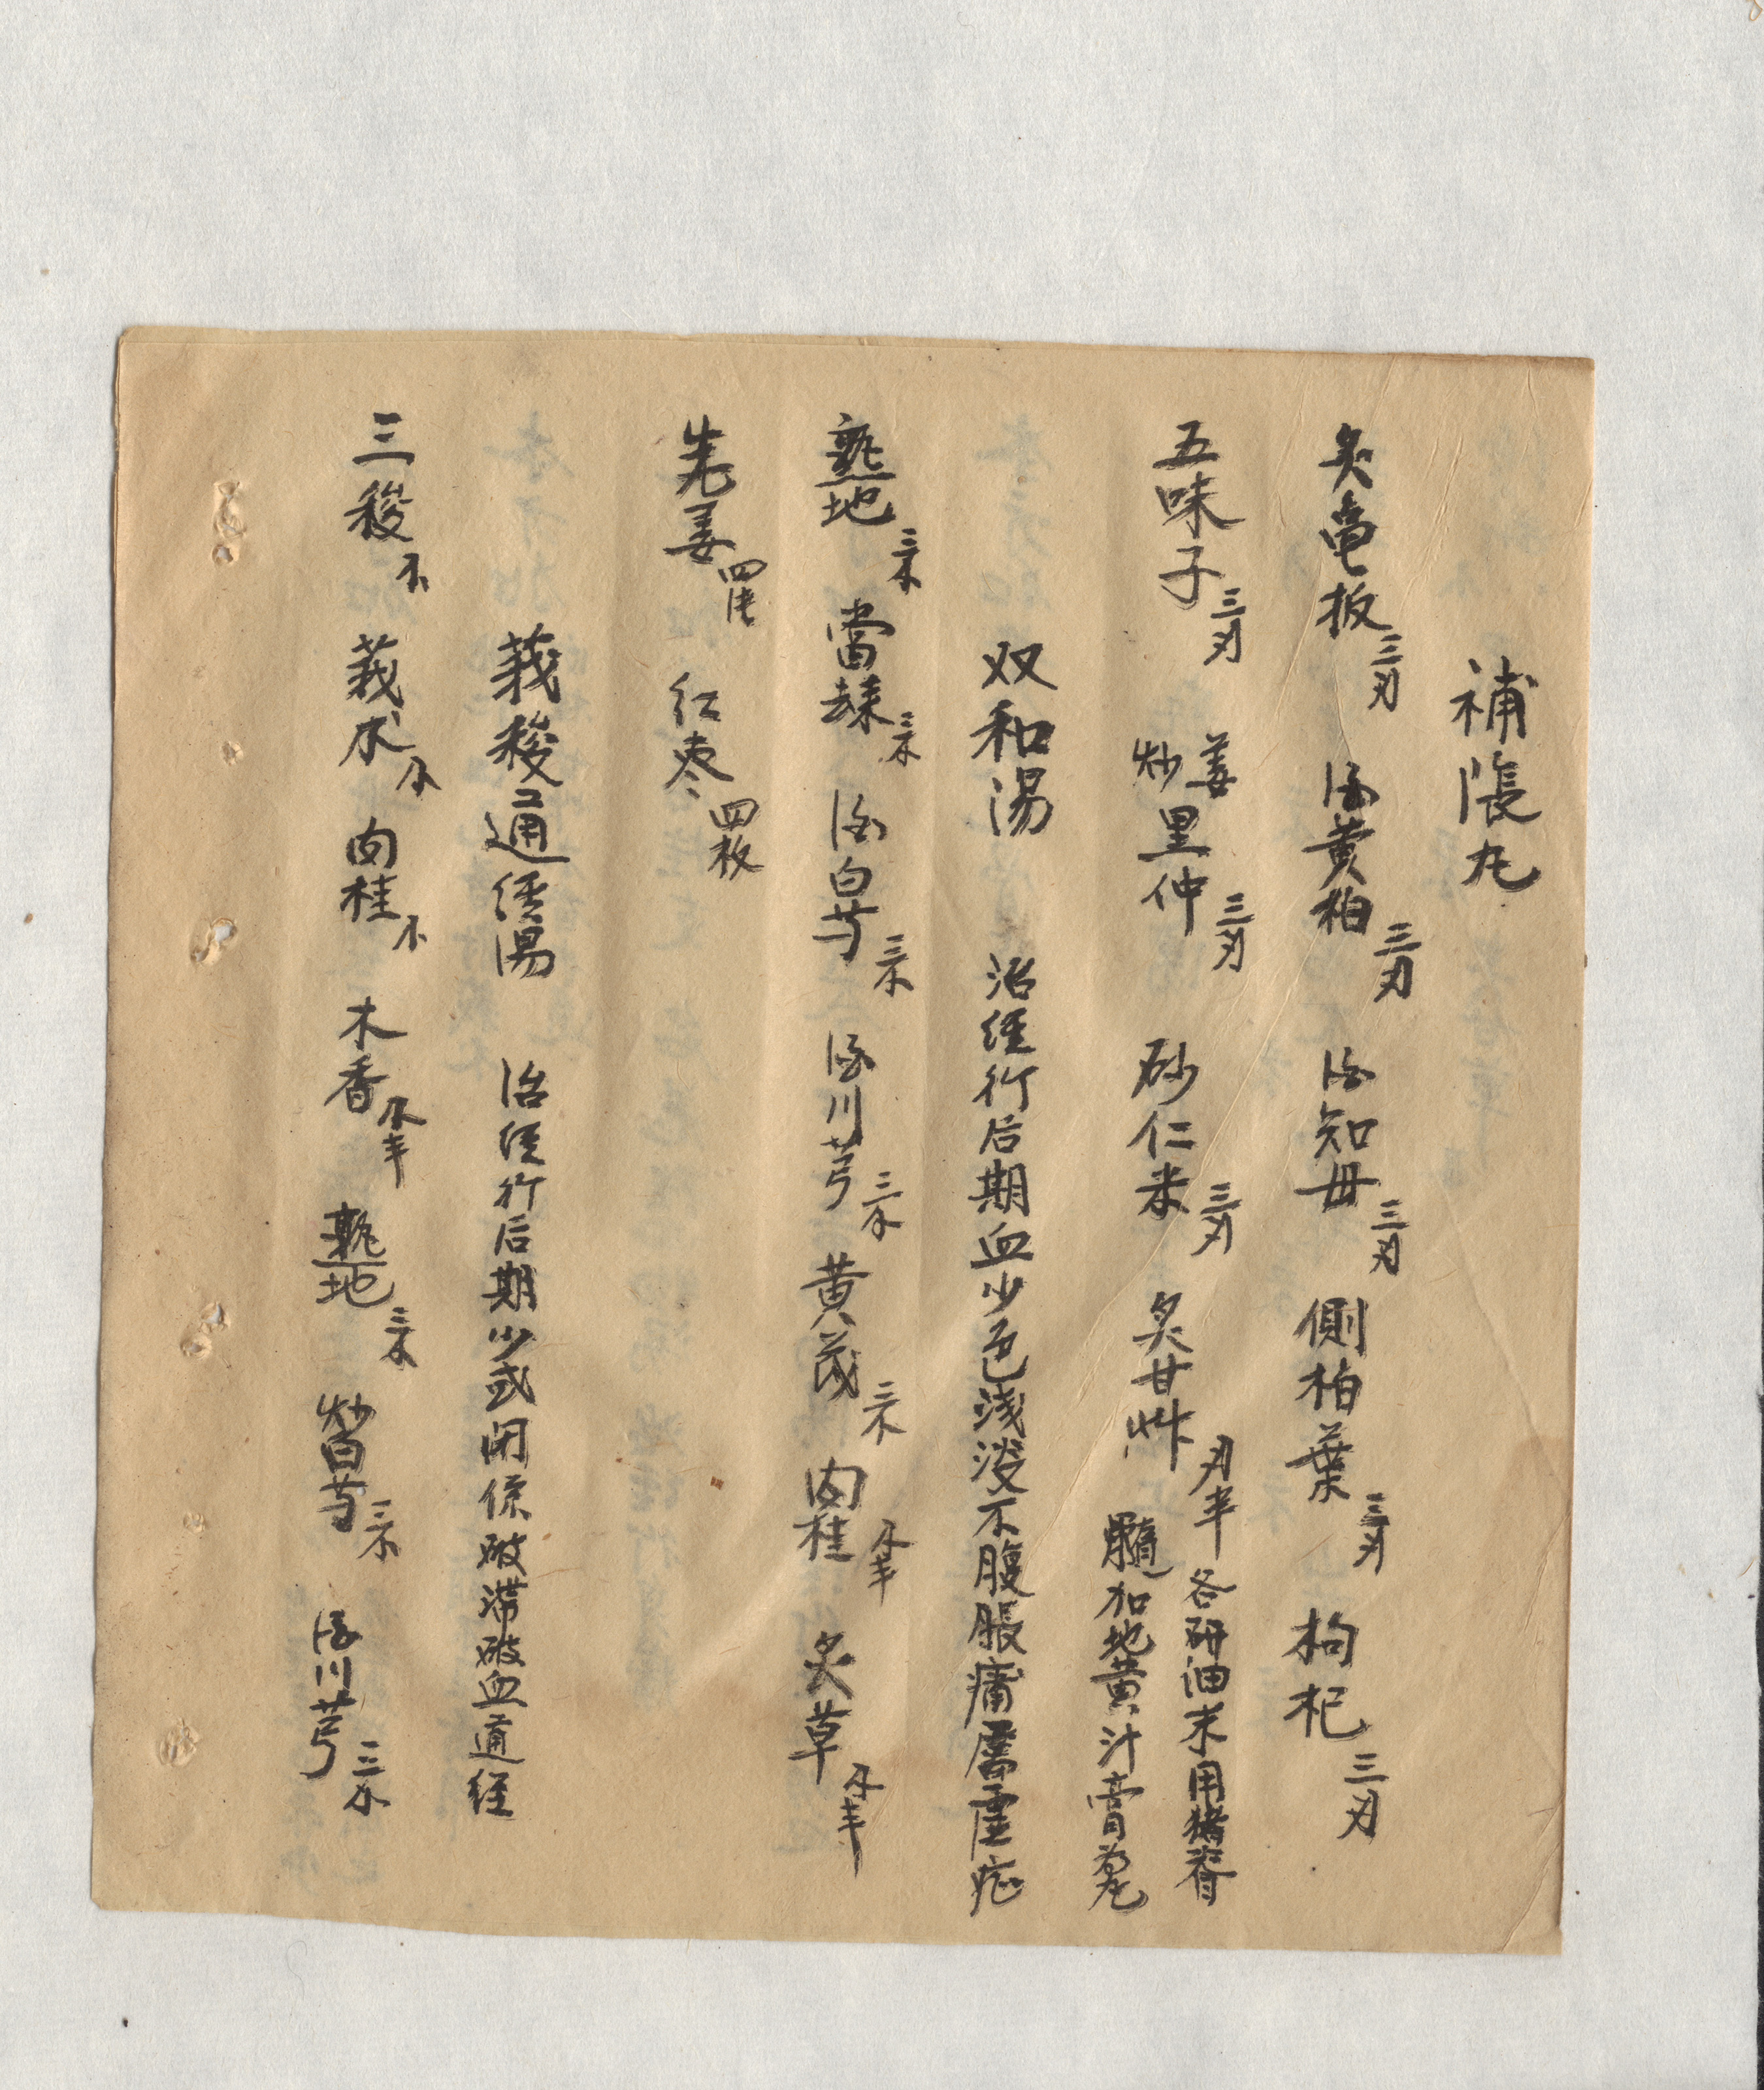 補陰丸
炙龟板三刃 酒黄柏三刃 酒知母三刃 側柏葉三刃 枸杞三刃
五味子三刃 姜炒里仲三刃 砂仁米三刃 炙甘艸刃半 各研油末用猪脊髓加地黄汁膏為丸
双和湯 治経行后期血少色浅淡不腹脹痛属虚症
熟地三 當歸三 酒白芍三 酒川芎三 黄茂三 肉桂半 炙草半
老姜四 红枣四枚
莪稜通経湯 治経行后期少或闭係破滞破血通経
三稜 莪术 肉桂 木香半 熟地三 炒白芍三 酒川芎三